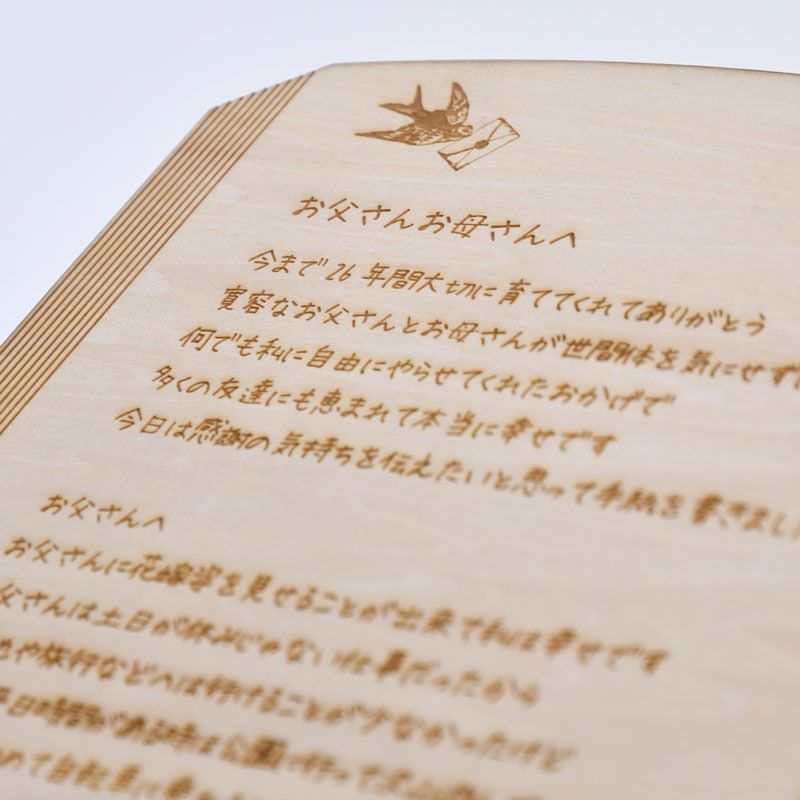 お父さんお母さんへ
今まで26年間大切に育ててくれてありがとう
寛容なお父さんとお母さんが世間体を気にせず
何でも私に自由にやらせてくれたおかげで
多くの友達にも恵まれて本当に幸せです
今日は感謝の気持ちを伝えたいと思って手紙を書きました
お父さんへ
お父さんに花嫁姿を見せることが出来て私は幸せです
父さんは土日が休みじゃない仕事だったから
や旅行などへは行けることが少なかったけど
平日時間がある時は公園に行って
めて自転車に